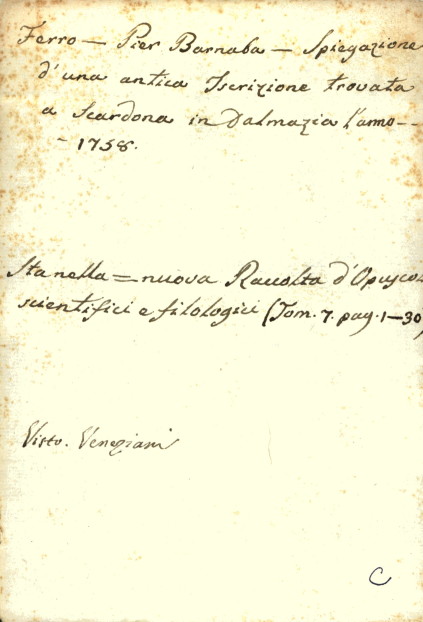 Ferro — Pier Barnaba — Spiegazione
d'una antica Iscrizione trovata
a Scardona in Dalmazia l'anno --
- 1758.
Sta nella = nuova Raccolta d'Opusco
scientifici e filologici (Tom. 7. pag. 1—30)
Visto. Veneziani
C